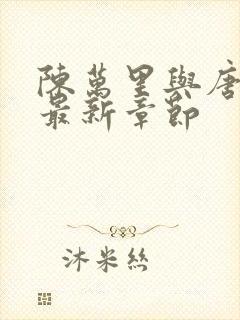 陳萬里與唐
最新章節
沐米絲